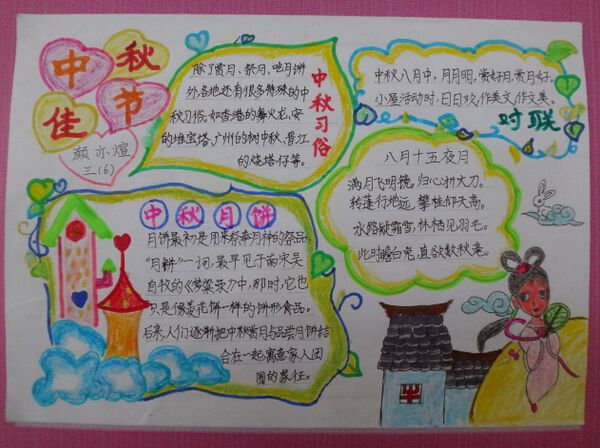 中秋佳节
颜亦煊
三(6)
除了赏月、祭月、吃月饼
外,各地还有很多特殊的中
秋习俗。如香港的舞火龙、安
的堆宝塔、广州的树中秋、晋江
的烧塔仔等。
中秋习俗
中秋八月中,月月明,赏好月,赏月好。
小屋活动时,日日欢,作美文,作文美。
对联
八月十五夜月
满月飞明镜,归心折大刀。
转蓬行地远,攀桂仰天高。
水路疑霜雪,林栖见羽毛。
此时瞻白兔,直欲数秋毫。
中秋月饼
月饼最初是用来祭奉月神的祭品,
"月饼"一词,最早见于南宋吴
自牧的《梦粱录》中,那时,它也
只是像菱花饼一样的饼形食品。
后来,人们逐渐把中秋赏月与品尝月饼结
合在一起,寓意家人团
圆的象征。